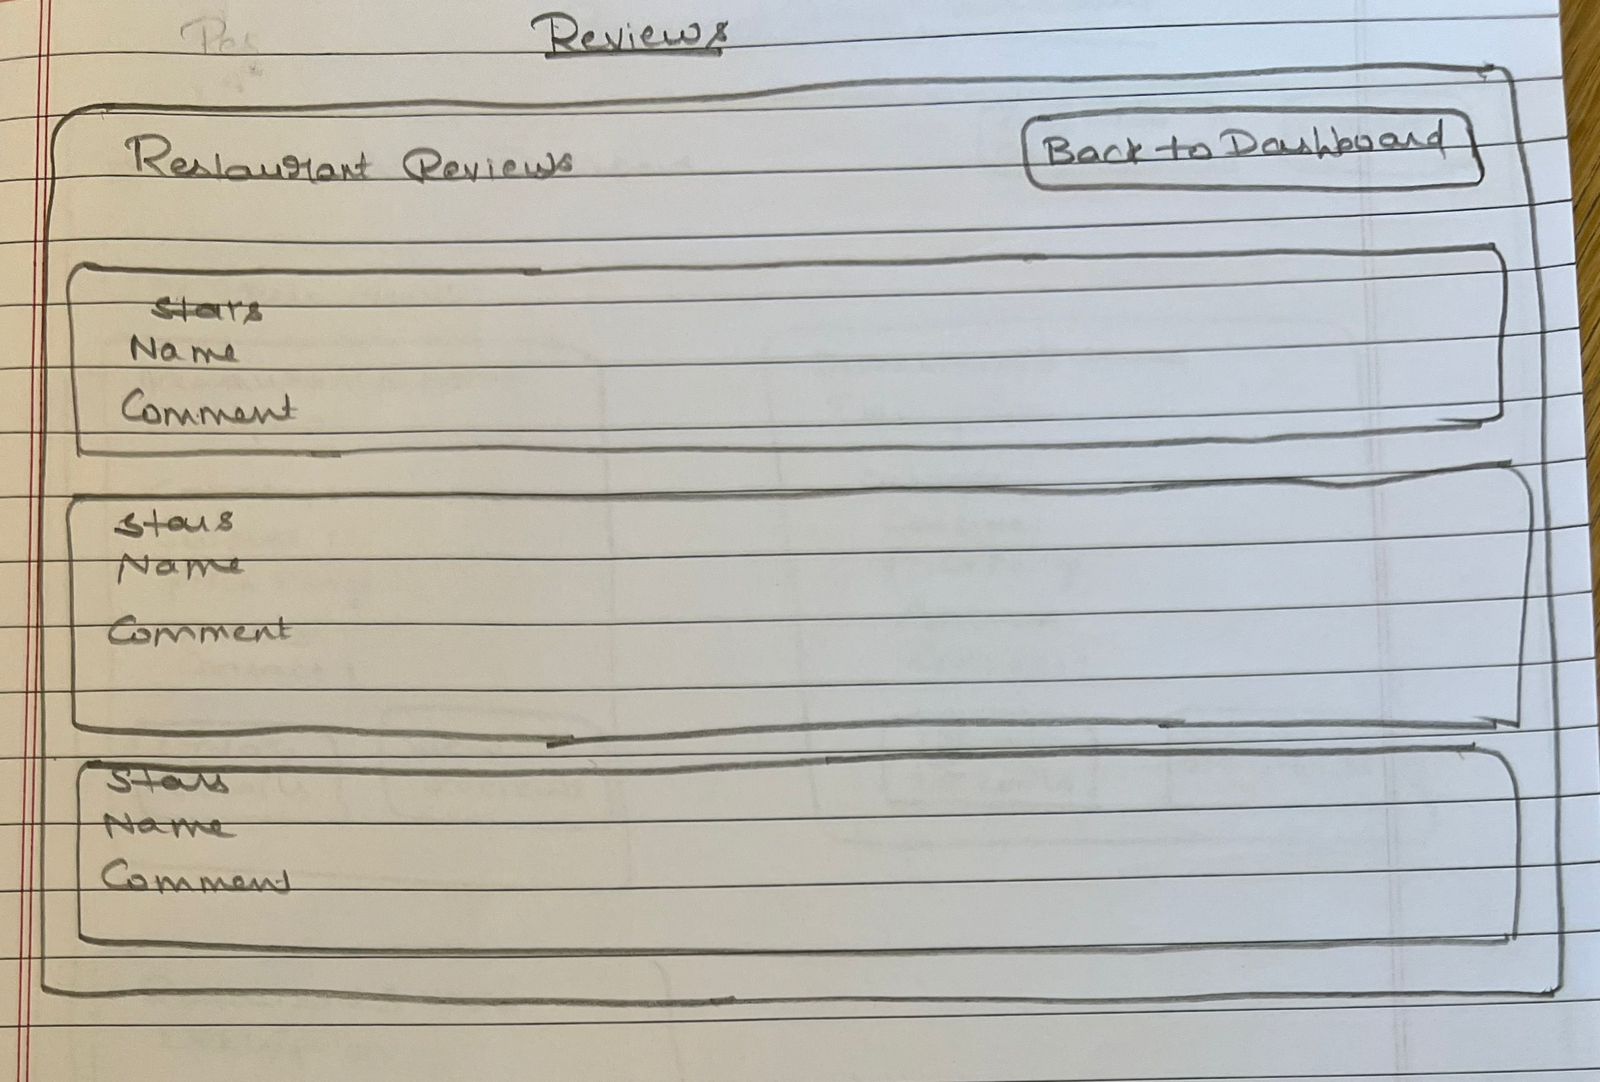 Reviews
Restaurant Reviews
Back to Dashboard
Stars
Name
Comment
Stars
Name
Comment
Stars
Name
Comment